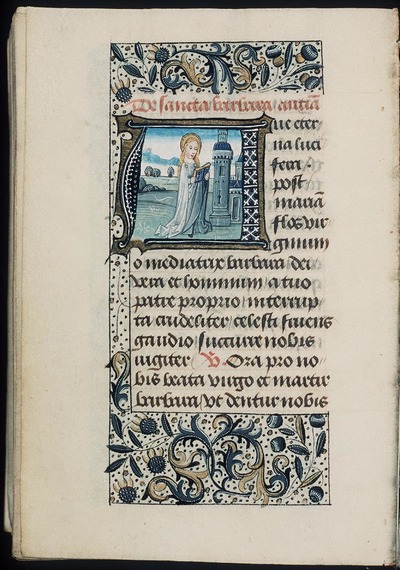 De sancta barbara antiã
ue eter
na luci
fera .
post
mariã
flos vir
ginum
o mediatrix barbara dei
vera et hominum / a tuo
patre proprio / interrup
ta crudeliter / celesti fruens
gaudio / succurre nobis
iugiter ℣. Ora pro no
bis beata virgo et martir
barbara / vt dentur nobis